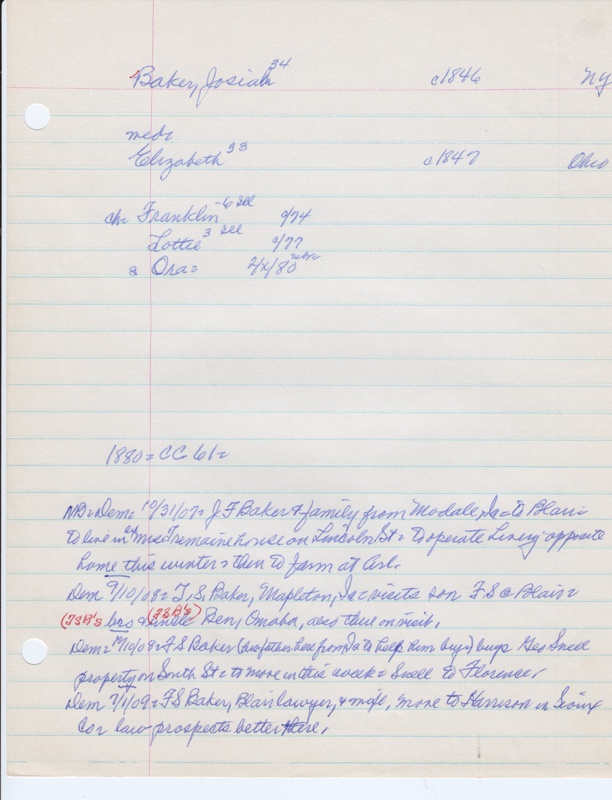 Baker, Josiah 34 c1846 NY
med=
Elizabeth 33 c1847 Ohio
ch= Franklin 6 Ill c/74
Lottie 3 Ill c/77
& Ora= 2/x/80 nebr
1880= CC 61=
NB= Dem= 10/31/07= J F Baker & family from Modale, Ia= to Blair
to live in Mrs Tremaine house on Lincoln St= to operate Livery opposite
home this winter & then to farm at Arl.
Dem 9/10/08= T, S, Baker, Mapleton, Ia= visits son F S @ Blair=
(FSB's bro & (FSB's) Ben, Omaha, also there on visit,
Dem= 9/10/08= F S Baker (his father here from Ia to help him buy=) buys Geo Snell
property on South St= to move in this week= Snell to Florence,
Dem 7/1/09= F S Baker, Blair lawyer, & wife, move to Harrison in Sioux
Co= law prospects better there,